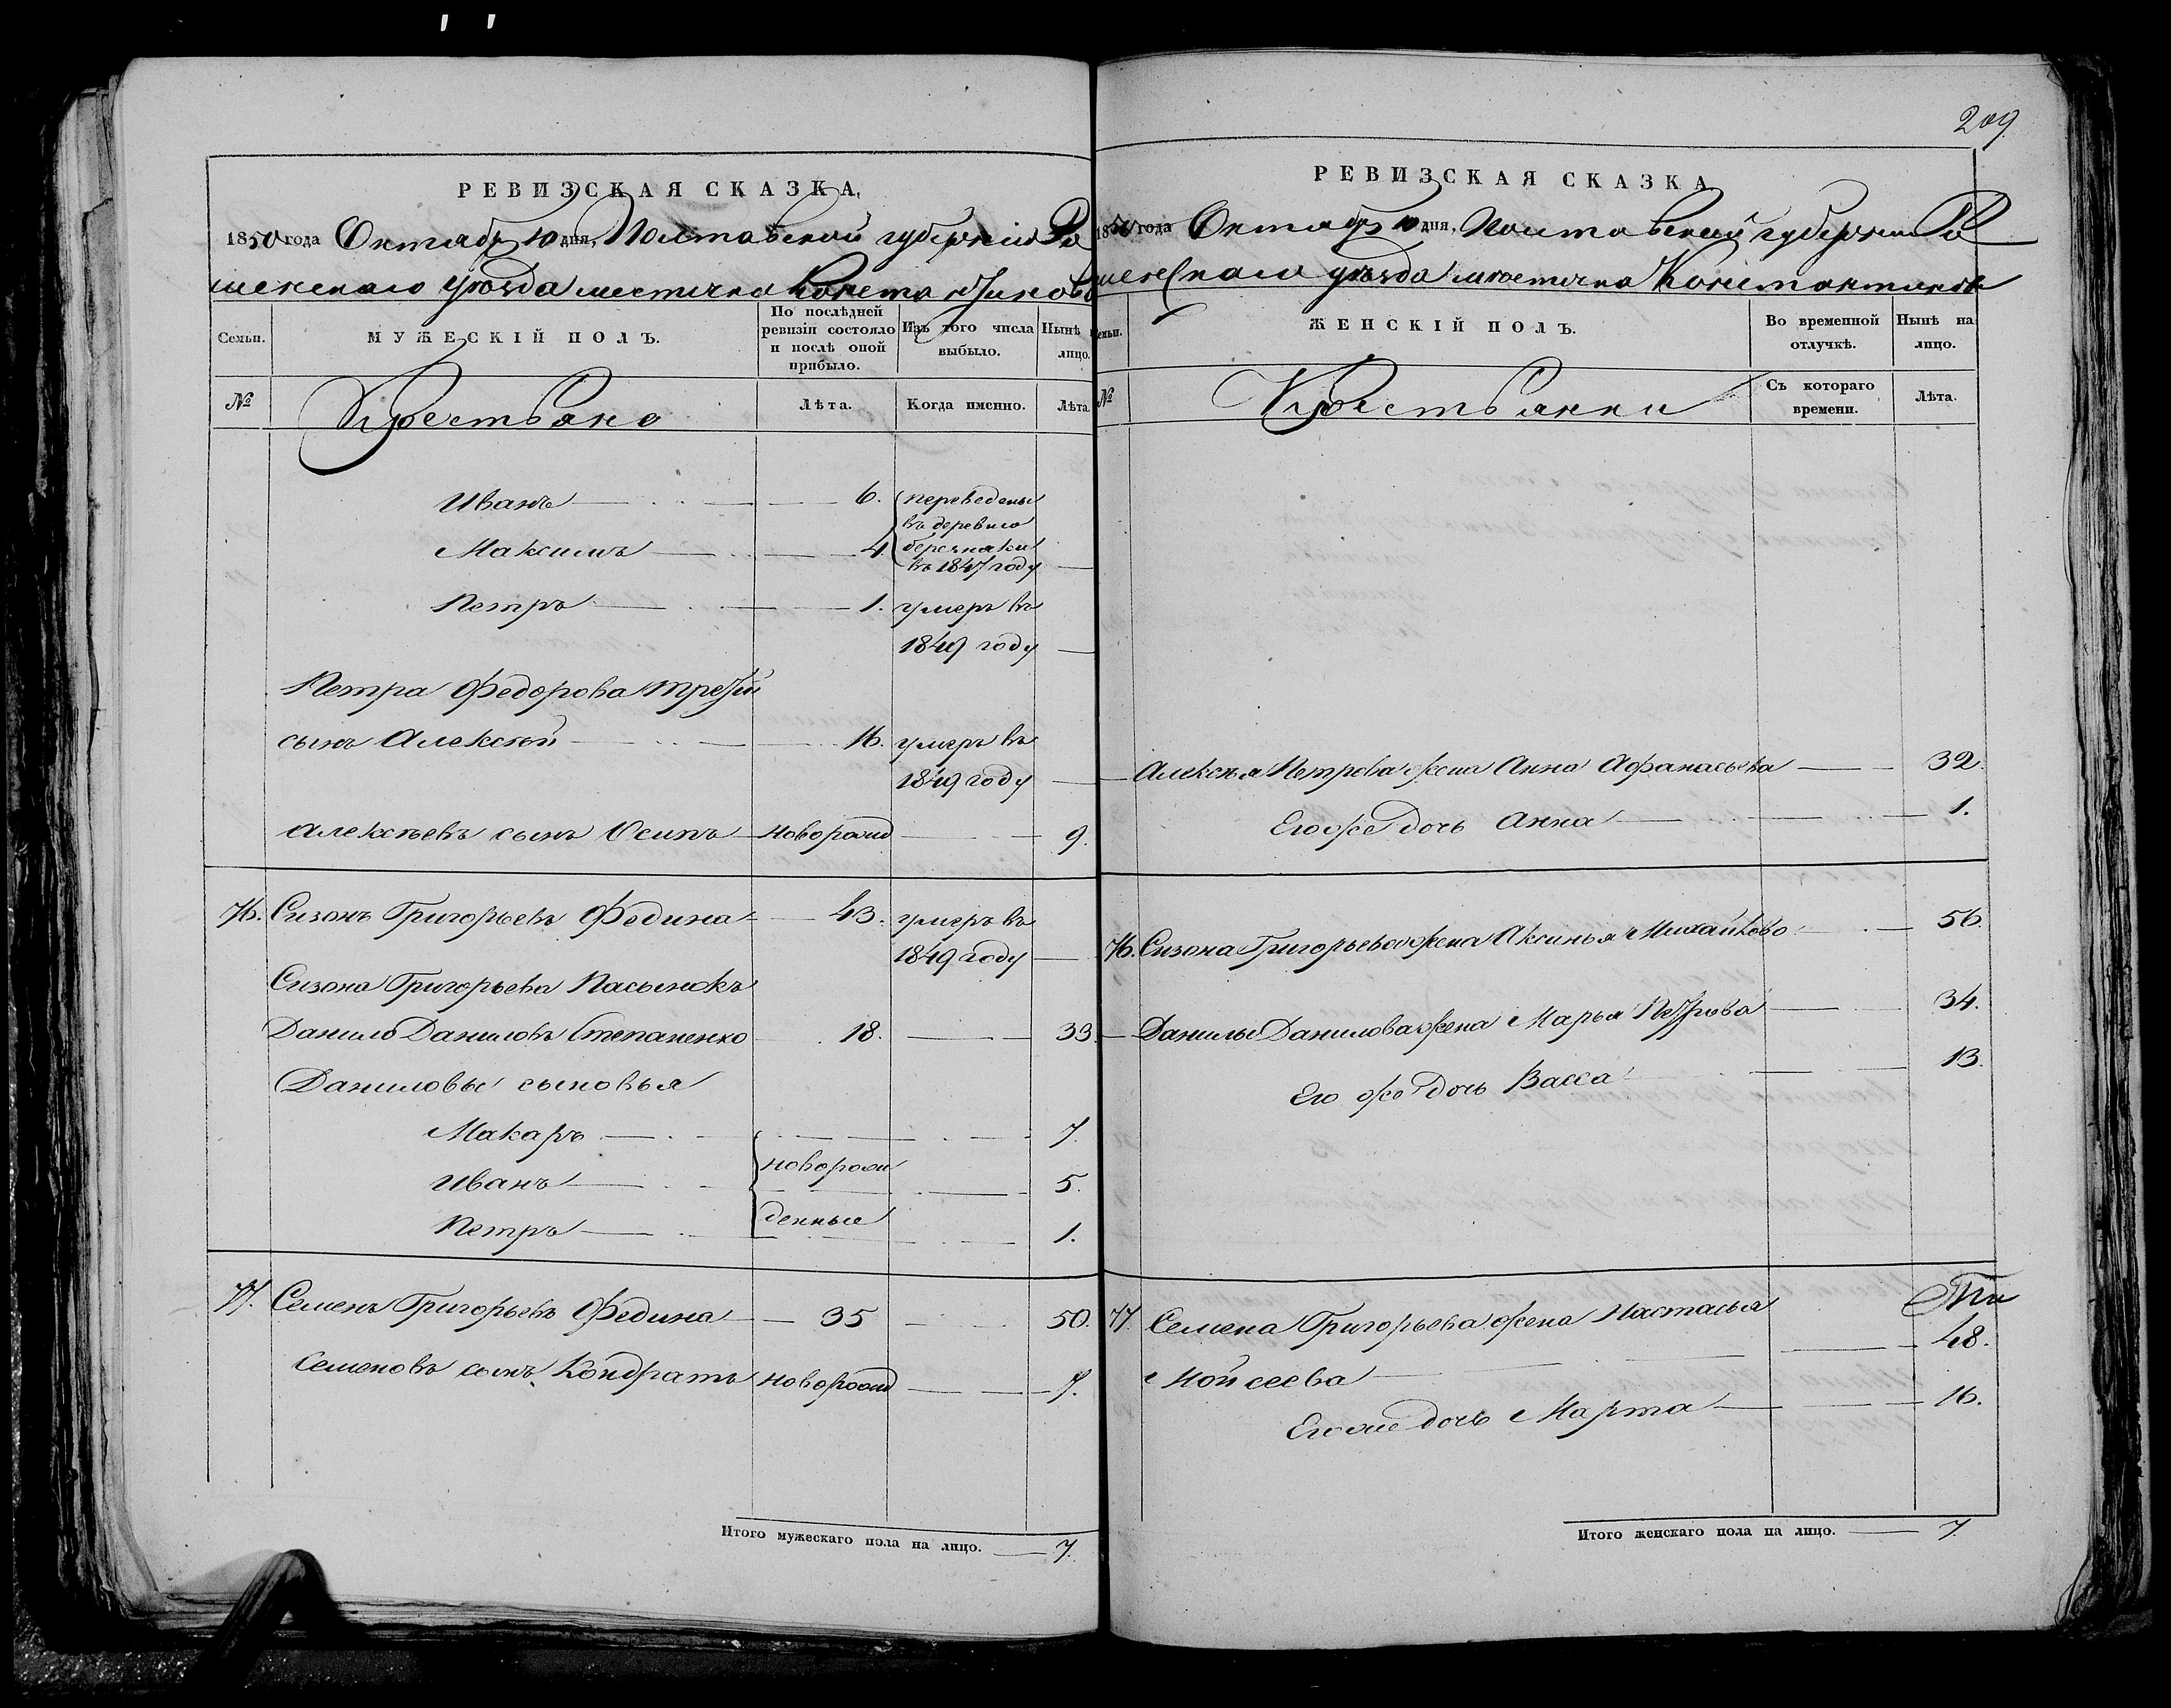 РЕВИЗСКАЯ СКАЗКА,
1850 года Октября 10 дня, Полтавской губерніи Ро
менскаго уѣзда местечка Константинова
Семьи.
МУЖЕСКІЙ ПОЛЪ.
По послѣдней ревизіи состояло и послѣ оной прибыло.
Изъ того числа выбыло.
Нынѣ на лицо.
№
Крестьяне
Лѣта.
Когда именно.
Лѣта.
Иванъ 6. переведены
въ деревню
Максимъ 4
въ 1847 году
Петръ 1. умеръ въ
1849 году
Петра Федорова третій
сынъ Алексѣй 16. умеръ въ
1849 году
Алексѣевъ сынъ Осипъ новорожд 9.
76. Сизонъ Григорьевъ Федина 43. умеръ въ
1849 году
Сизона Григорьева Пасынокъ
Данило Даниловъ Степаненко 18. 33.
Даниловы сыновья
Макаръ 7.
новорож
Иванъ 5.
денные
Петръ 1.
77. Семенъ Григорьевъ Федина 35 50.
Семеновъ сынъ Кондратъ новорожд 7.
Итого мужескаго пола на лицо. 7.
209
РЕВИЗСКАЯ СКАЗКА
1850 года Октября 10 дня, Полтавской губерніи Ро
менскаго уѣзда мѣстечка Константинова
Семьи.
ЖЕНСКІЙ ПОЛЪ.
Во временной отлучкѣ.
Нынѣ на лицо.
№
Крестьянки
Съ котораго времени.
Лѣта.
Алексѣя Петрова жена Анна Афанасьева 32.
Его же дочь Анна 1.
76. Сизона Григорьева жена Аксинья Михайлова 56.
Данилы Данилова жена Марья Петрова 34.
Его же дочь Васса 13.
77. Семена Григорьева жена Настасья
48.
Мойсеева
Его же дочь Марта 16.
Итого женскаго пола на лицо. 7.